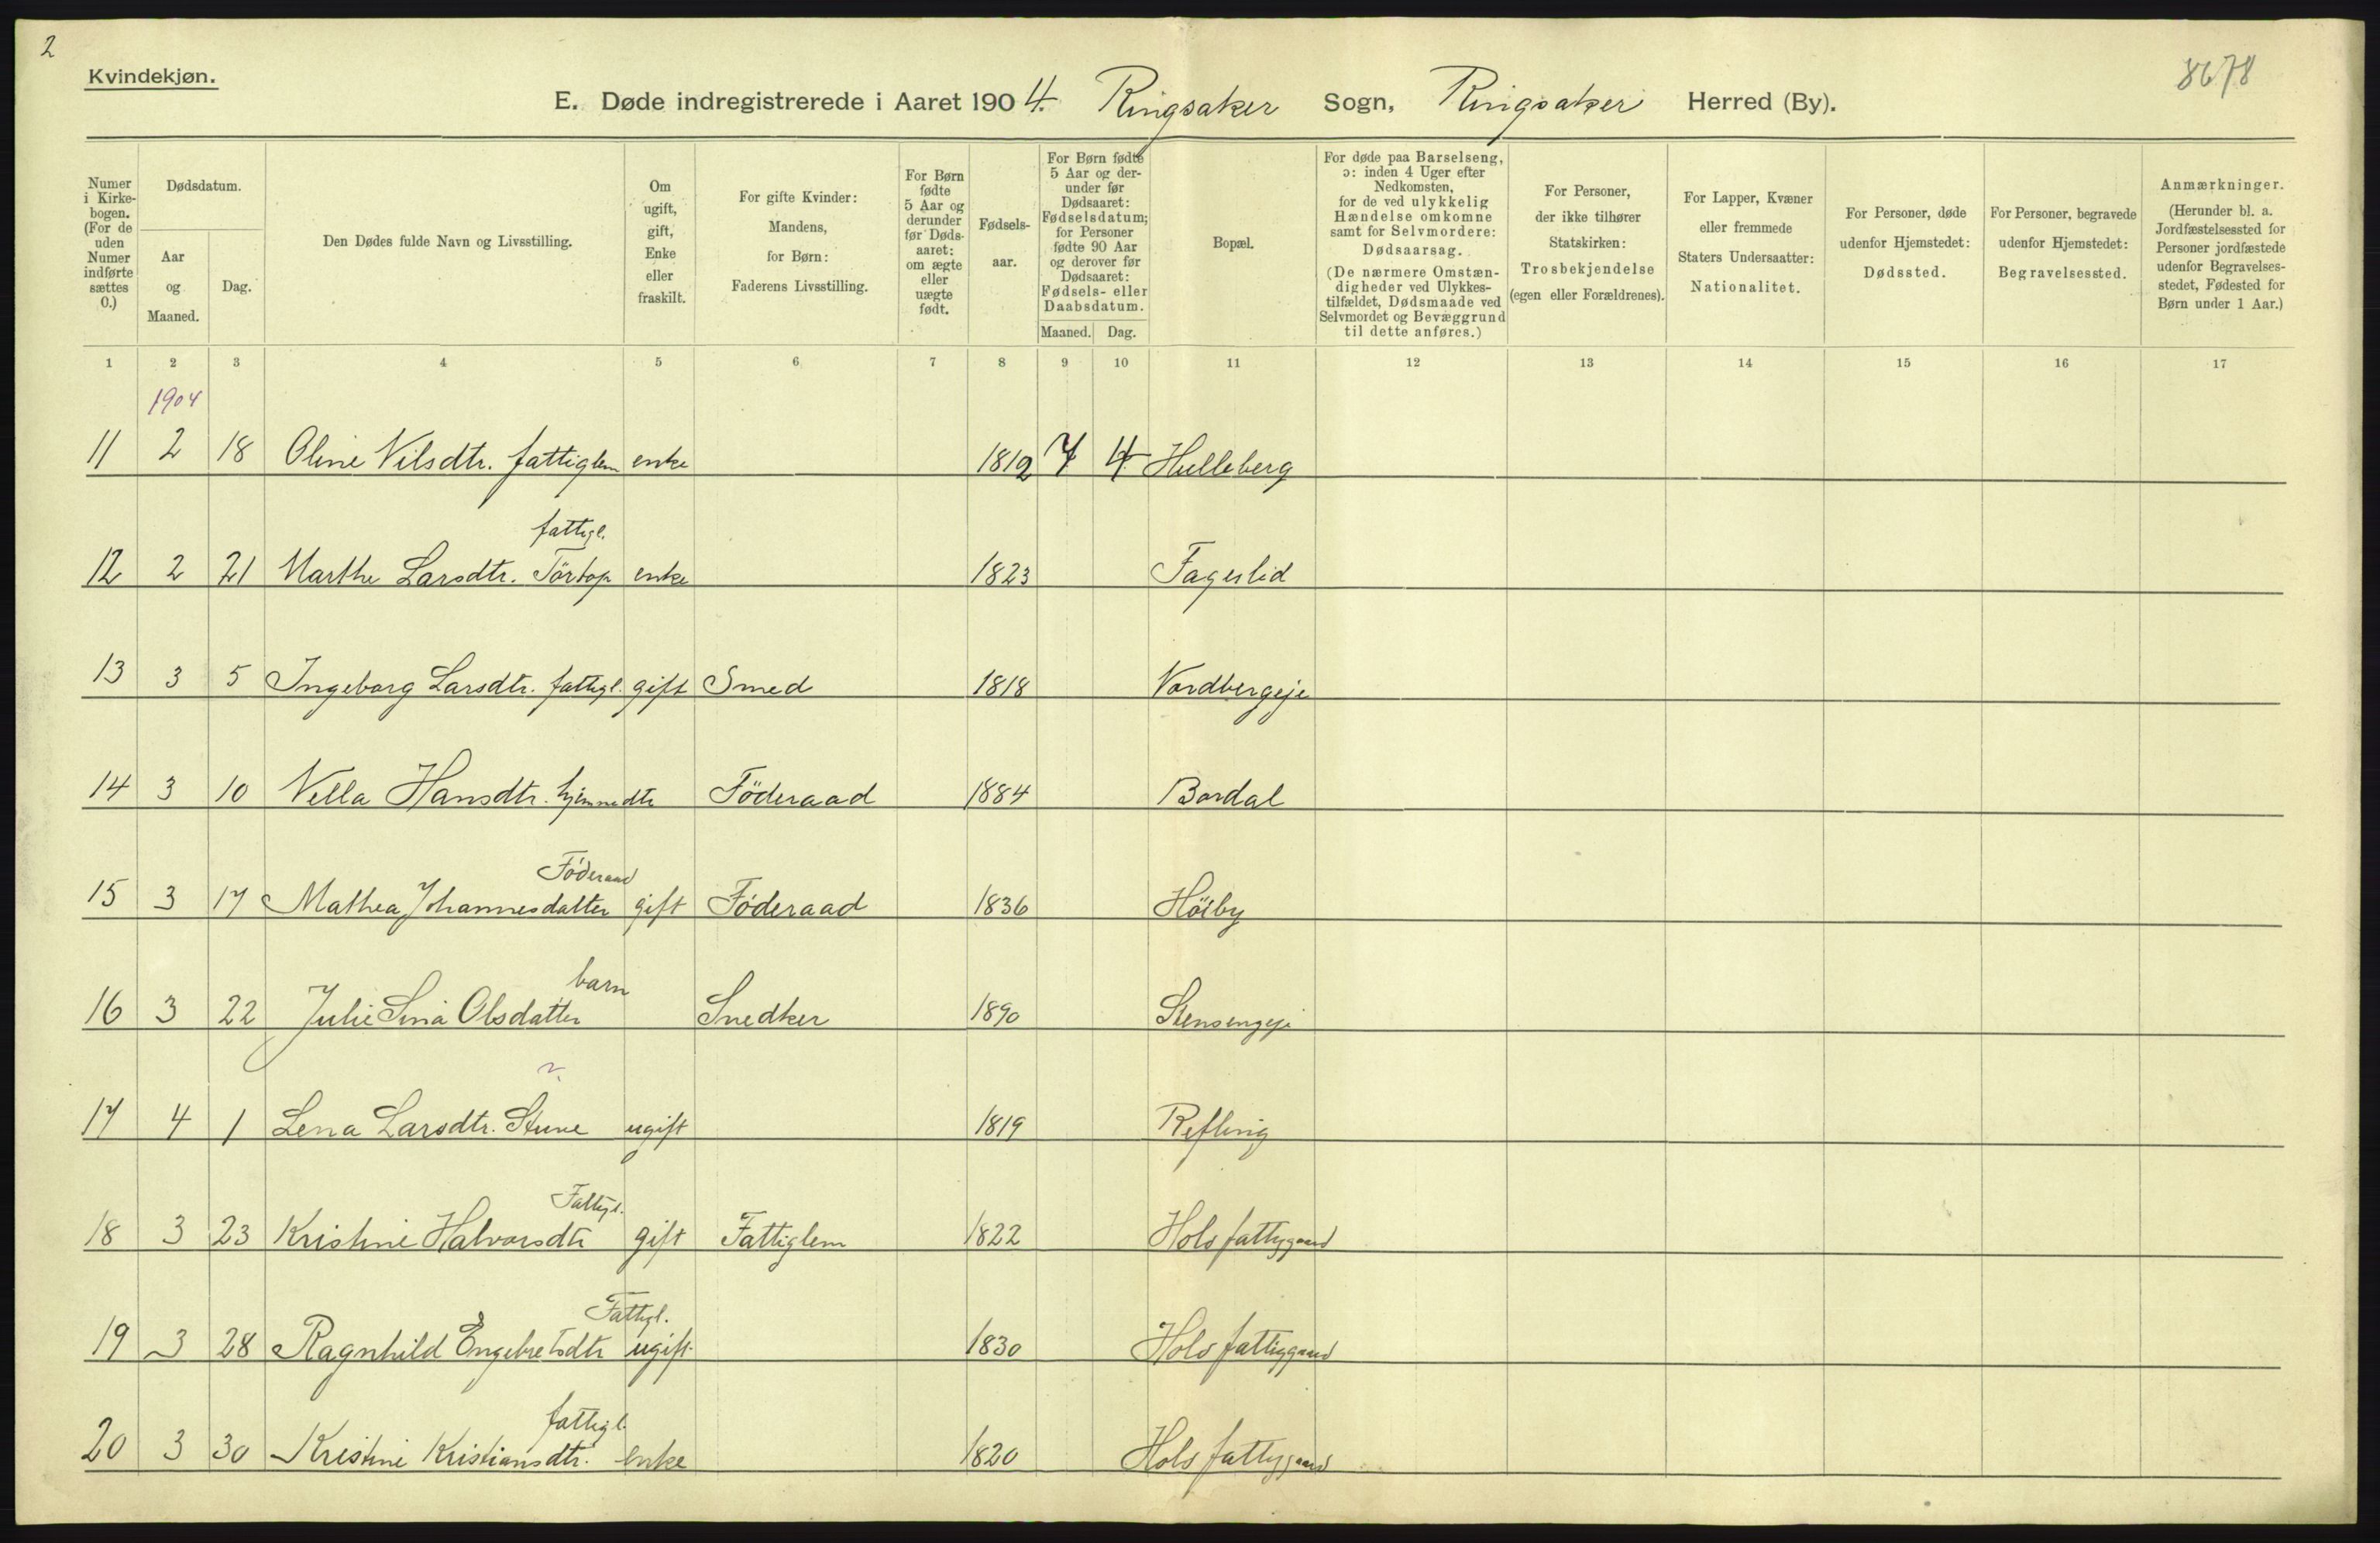 2
Kvindekjøn.
8678
E. Døde indregistrerede i Aaret 1904. Ringsaker Sogn, Ringsaker Herred (By).
Numer i Kirkebogen. (For de uden Numer indførte sættes 0.)
Dødsdatum.
Aar og Maaned.
Dag.
Den Dødes fulde Navn og Livsstilling.
Om ugift, gift, Enke eller fraskilt.
For gifte Kvinder: Mandens, for Børn: Faderens Livsstilling.
For Børn fødte 5 Aar og derunder før Dødsaaret: om ægte eller uægte født.
Fødselsaar.
For Børn fødte 5 Aar og derunder før Dødsaaret: Fødselsdatum; for Personer fødte 90 Aar og derover før Dødsaaret: Fødsels- eller Daabsdatum.
Maaned. Dag.
Bopæl.
For døde paa Barselseng, ɔ: inden 4 Uger efter Nedkomsten, for de ved ulykkelig Hændelse omkomne samt for Selvmordere: Dødsaarsag. (De nærmere Omstændigheder ved Ulykkestilfældet, Dødsmaade ved Selvmordet og Bevæggrund til dette anføres.)
For Personer, der ikke tilhører Statskirken: Trosbekjendelse (egen eller Forældrenes).
For Lapper, Kvæner eller fremmede Staters Undersaatter: Nationalitet.
For Personer, døde udenfor Hjemstedet: Dødssted.
For Personer, begravede udenfor Hjemstedet: Begravelsessted.
Anmærkninger. (Herunder bl. a. Jordfæstelsessted for Personer jordfæstede udenfor Begravelsesstedet, Fødested for Børn under 1 Aar.)
1 2 3 4 5 6 7 8 9 10 11 12 13 14 15 16 17
1904
11 2 18 Oline Nilsdtr. fattiglem enke 1812 7 4 Hulleberg
fattigl.
12 2 21 Marthe Larsdtr. Törtop enke 1823 Fageslid
13 3 5 Ingeborg Larsdtr. fattigl. gift Smed 1818 Nordbergeje
14 3 10 Nella Hansdtr. hjemmedtr Föderaad 1884 Bardal
Föderaad
15 3 17 Mathea Johannesdatter gift Föderaad 1836 Höiby
barn
16 3 22 Julie Sina Olsdatter Snedker 1890 Stensengeje
17 4 1 Lena Larsdtr. Stuve ugift 1819 Refling
Fattigl.
18 3 23 Kristine Halvorsdtr gift Fattiglem 1822 Hols fattiggaard
Fattigl.
19 3 28 Ragnhild Engebretsdtr ugift 1830 Hols fattiggaard
fattigl.
20 3 30 Kristine Kristiansdtr. enke 1820 Hols fattiggaard